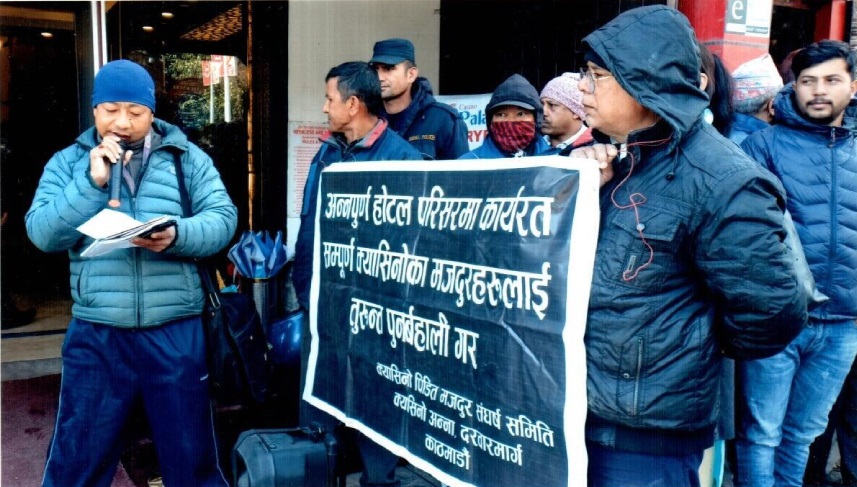 अन्नपुर्ण होटल परिसरमा कार्यरत
सम्पूर्ण क्यासिनोका मजदुरहरुलाई
तुरुन्त पुनर्बहाली गर
क्यासिनो पिडित मजदुर संघर्ष समिति
क्यसिनो अन्ना, दरवारमार्ग
काठमाडौं
Casino
e